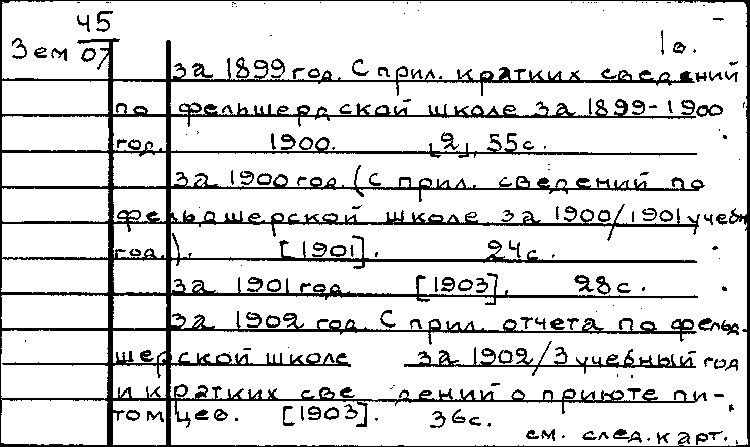 45
Зем 07
1в.
за 1899 год. С прил. кратких сведений
по фельшерdской школе за 1899-1900
год. 1900. [2], 55с.
за 1900 год. (С прил. сведений по
фельдшерской школе за 1900/1901 учебн
год.). [1901]. 24с.
за 1901 год [1903]. 28с.
за 1902 год. С прил. отчета по фельд-
шерской школе за 1902/3 учебный год
и кратких све дений о приюте пи-
томцев. [1903]. 36с.
см. след. карт.